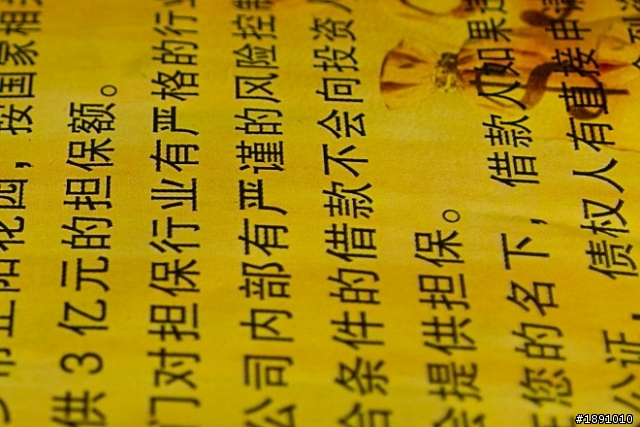 市正阳花园，按国家相关
供3亿元的担保额。
门对担保行业有严格的行业
公司内部有严谨的风险控制
合条件的借款不会向投资人
会提供担保。
在您的名下，借款人如果违
债权人有直接申请
公证，
#1891010